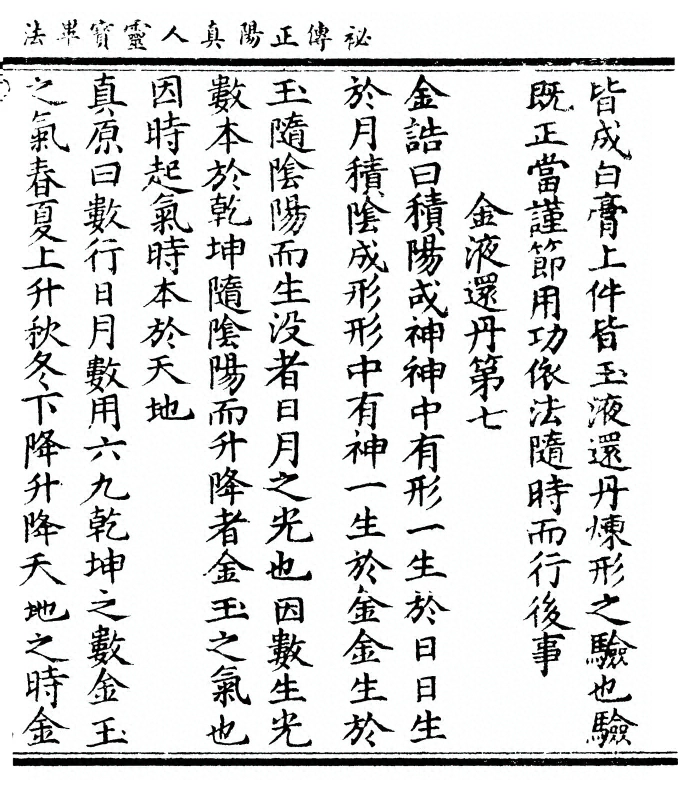 祕傳正陽真人靈寶畢法
皆成白膏上件皆玉液還丹煉形之驗也驗
既正當謹節用功依法隨時而行後事
金液還丹第七
金誥曰積陽成神神中有形一生於日日生
於月積陰成形形中有神一生於金金生於
玉隨陰陽而生没者日月之光也因數生光
數本於乾坤隨陰陽而升降者金玉之氣也
因時起氣時本於天地
真原曰數行日月數用六九乾坤之數金玉
之氣春夏上升秋冬下降升降天地之時金